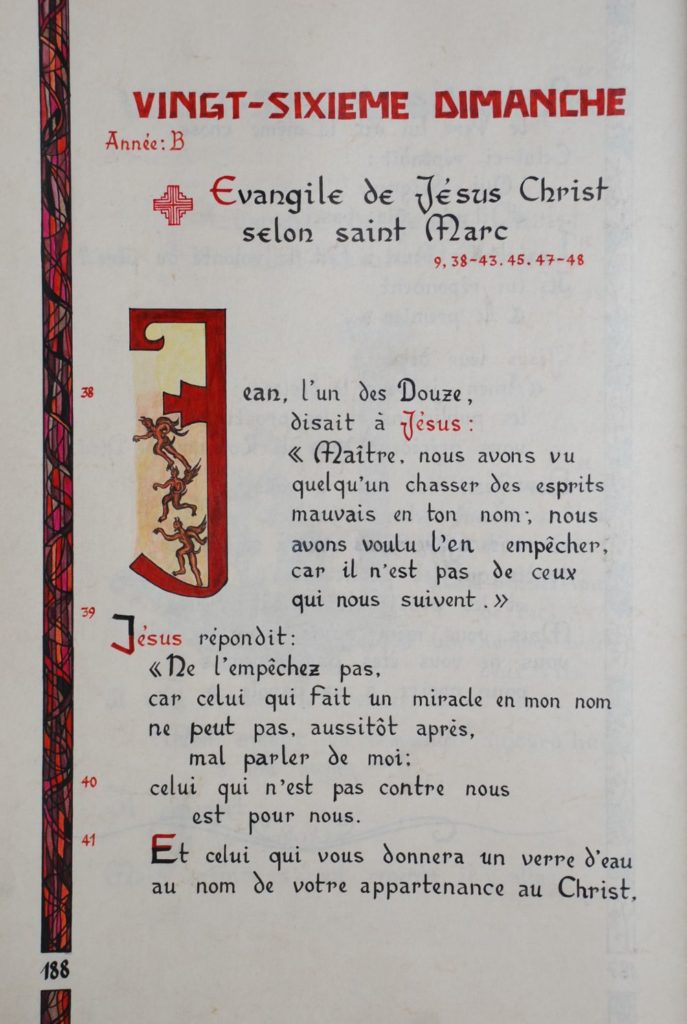 VINGT-SIXIEME DIMANCHE
Année: B
Evangile de Jésus Christ
selon saint Marc
9, 38-43. 45. 47-48
38 Jean, l'un des Douze,
disait à Jésus:
« Maître, nous avons vu
quelqu'un chasser des esprits
mauvais en ton nom; nous
avons voulu l'en empêcher,
car il n'est pas de ceux
qui nous suivent. »
39
Jésus répondit:
« Ne l'empêchez pas,
car celui qui fait un miracle en mon nom
ne peut pas, aussitôt après,
mal parler de moi;
40 celui qui n'est pas contre nous
est pour nous.
41
Et celui qui vous donnera un verre d'eau
au nom de votre appartenance au Christ,
188